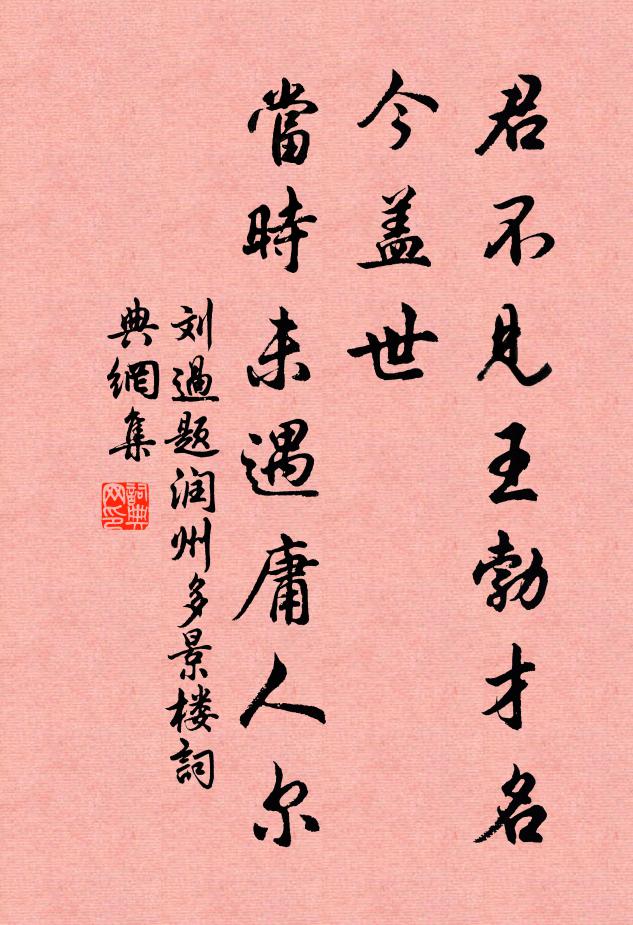 君不見王勃才名
今盖世
當時未遇庸人尔
刘過題润州多景楼詞
典網集
詞典
网印